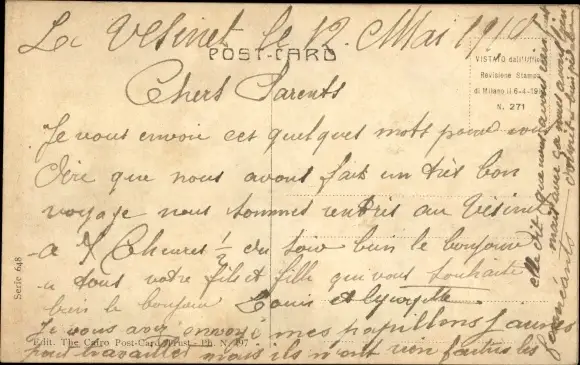 Le Vésinet le 12 Mai 191
POST-CARD
VISTATO dall'Uffic
Revisione Stampa
di Milano il 6-4-19
N. 271
Chers Parents
Je vous envoie ces quelques mots pour vous
dire que nous avons fait un très bon
voyage nous sommes rentrés au Vésinet
a heures 1/2 du soir bien le bonjour
a tous votre fils et fille qui vous souhaite
bien le bonjour Louis et
Je vous avez envoyé mes papillons jaunes
pour travailler mais ils n'ont rien les
fainéants
elle dit que nous
maintenant ça
Serie 648
Edit. The Cairo Post-Card Trust - Ph. N. 197